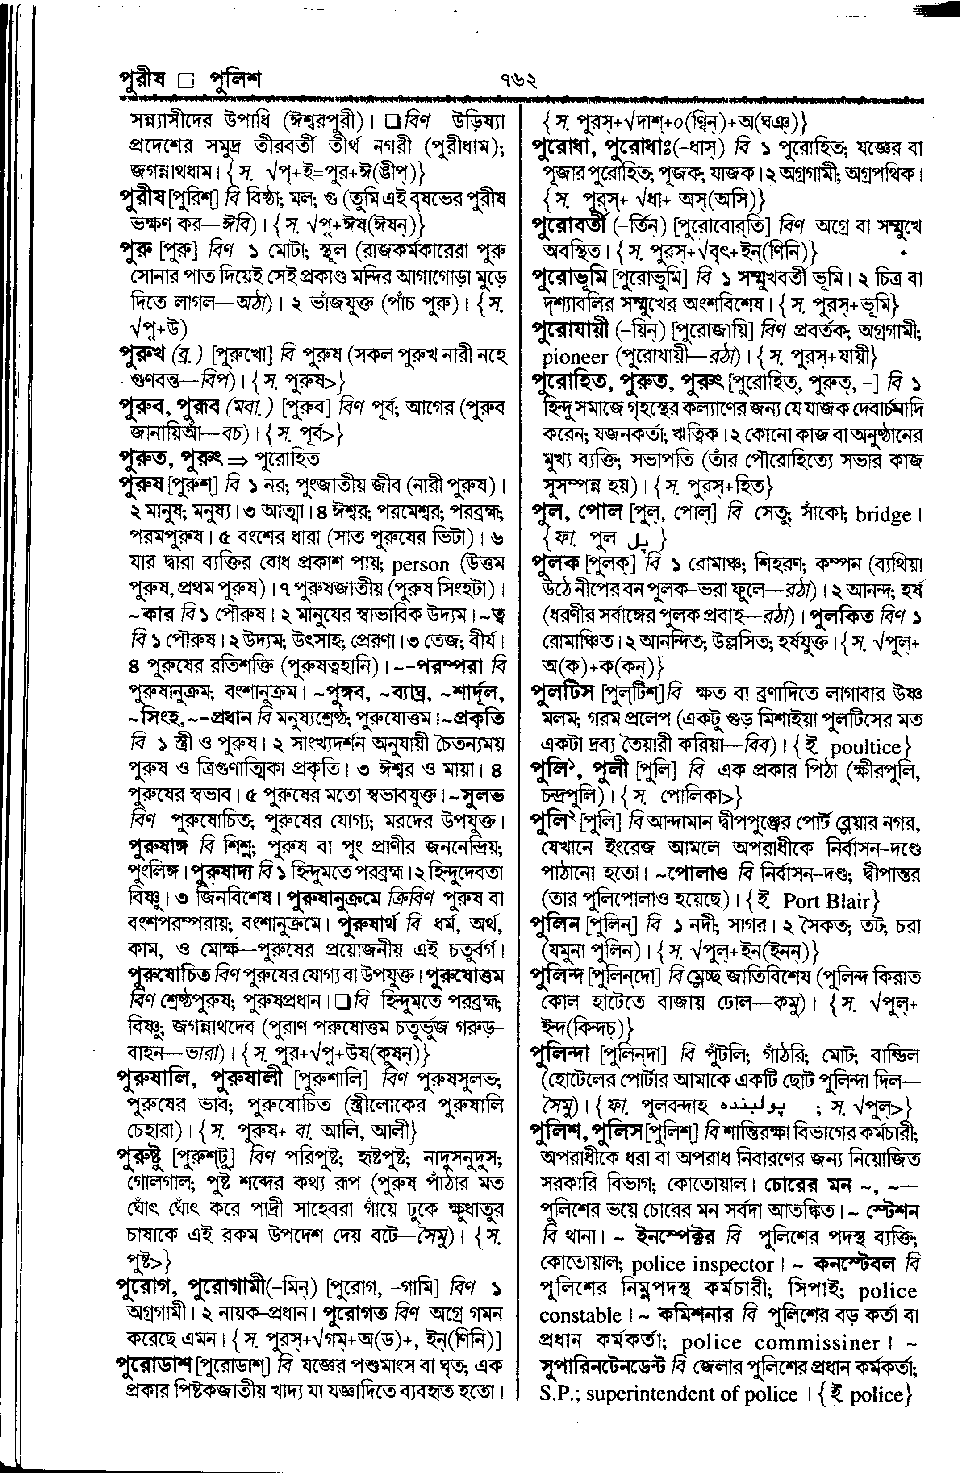 পুরীষ □ পুলিশ
৭৬২
সন্ন্যাসীদের উপাধি (ঈশ্বরপুরী)। □বিণ উড়িষ্যা
প্রদেশের সমুদ্র তীরবর্তী তীর্থ নগরী (পুরীধাম);
জগন্নাথধাম। {স. √পৃ+ই=পুর+ঈ(ঙীপ্)}
পুরীষ [পুরিশ্] বি বিষ্ঠা; মল; গু (তুমি এই বৃষভের পুরীষ
ভক্ষণ কর—ঈবি)। {স. √পৄ+ঈষ(ঈষন্)}
পুরু [পুরু] বিণ ১ মোটা; স্থূল (রাজকর্মকারেরা পুরু
সোনার পাত দিয়েই সেই প্রকাণ্ড মন্দির আগাগোড়া মুড়ে
দিতে লাগল—অঠা)। ২ ভাঁজযুক্ত (পাঁচ পুরু)। {স.
√পৄ+উ}
পুরুখ (ব্র.) [পুরুখো] বি পুরুষ (সকল পুরুখ নারী নহে
গুণবন্ত—বিপ)। {স. পুরুষ>}
পুরুব, পুরূব (মবা.) [পুরুব] বিণ পূর্ব; আগের (পুরুব
জানায়িআঁ—বচ)। {স. পূর্ব>}
পুরুত, পুরুৎ ⇒ পুরোহিত
পুরুষ [পুরুশ্] বি ১ নর; পুংজাতীয় জীব (নারী পুরুষ)।
২ মানুষ; মনুষ্য। ৩ আত্মা। ৪ ঈশ্বর; পরমেশ্বর; পরব্রহ্ম;
পরমপুরুষ। ৫ বংশের ধারা (সাত পুরুষের ভিটা)। ৬
যার দ্বারা ব্যক্তির বোধ প্রকাশ পায়; person (উত্তম
পুরুষ, প্রথম পুরুষ)। ৭ পুরুষজাতীয় (পুরুষ সিংহটা)।
~কার বি ১ পৌরুষ। ২ মানুষের স্বাভাবিক উদ্যম। ~ত্ব
বি ১ পৌরুষ। ২ উদ্যম; উৎসাহ; প্রেরণা। ৩ তেজ; বীর্য।
৪ পুরুষের রতিশক্তি (পুরুষত্বহানি)। ~-পরম্পরা বি
পুরুষানুক্রম; বংশানুক্রম। ~পুঙ্গব, ~ব্যাঘ্র, ~শার্দূল,
~সিংহ, ~-প্রধান বি মনুষ্যশ্রেষ্ঠ; পুরুষোত্তম। ~প্রকৃতি
বি ১ স্ত্রী ও পুরুষ। ২ সাংখ্যদর্শন অনুযায়ী চৈতন্যময়
পুরুষ ও ত্রিগুণাত্মিকা প্রকৃতি। ৩ ঈশ্বর ও মায়া। ৪
পুরুষের স্বভাব। ৫ পুরুষের মতো স্বভাবযুক্ত। ~সুলভ
বিণ পুরুষোচিত; পুরুষের যোগ্য; মরদের উপযুক্ত।
পুরুষাঙ্গ বি শিশ্ন; পুরুষ বা পুং প্রাণীর জননেন্দ্রিয়;
পুংলিঙ্গ। পুরুষাদ্য বি ১ হিন্দুমতে পরব্রহ্ম। ২ হিন্দুদেবতা
বিষ্ণু। ৩ জিনবিশেষ। পুরুষানুক্রমে ক্রিবিণ পুরুষ বা
বংশপরম্পরায়; বংশানুক্রমে। পুরুষার্থ বি ধর্ম, অর্থ,
কাম, ও মোক্ষ—পুরুষের প্রয়োজনীয় এই চতুর্বর্গ।
পুরুষোচিত বিণ পুরুষের যোগ্য বা উপযুক্ত। পুরুষোত্তম
বিণ শ্রেষ্ঠপুরুষ; পুরুষপ্রধান। □ বি হিন্দুমতে পরব্রহ্ম;
বিষ্ণু; জগন্নাথদেব (পুরাণ পরুষোত্তম চতুর্ভুজ গরুড়-
বাহন—ভারা)। {স. পুর+√পৄ+উষ(কুষন্)}
পুরুষালি, পুরুষালী [পুরুশালি] বিণ পুরুষসুলভ;
পুরুষের ভাব; পুরুষোচিত (স্ত্রীলোকের পুরুষালি
চেহারা)। {স. পুরুষ+ বা. আলি, আলী}
পুরুষ্টু [পুরুশ্‌টু] বিণ পরিপুষ্ট; হৃষ্টপুষ্ট; নাদুসনুদুস;
গোলগাল; পুষ্ট শব্দের কথ্য রূপ (পুরুষ পাঁঠার মত
ঘোঁৎ ঘোঁৎ করে পাদ্রী সাহেবরা গাঁয়ে ঢুকে ক্ষুধাতুর
চাষাকে এই রকম উপদেশ দেয় বটে—সৈমু)। {স.
পুষ্ট>}
পুরোগ, পুরোগামী(-মিন্) [পুরোগ, -গামি] বিণ ১
অগ্রগামী। ২ নায়ক-প্রধান। পুরোগত বিণ অগ্রে গমন
করেছে এমন। {স. পুরস্+√গম্+অ(ড)+, ইন্(ণিনি)]
পুরোডাশ [পুরোডাশ্] বি যজ্ঞের পশুমাংস বা ঘৃত; এক
প্রকার পিষ্টকজাতীয় খাদ্য যা যজ্ঞাদিতে ব্যবহৃত হতো।
{স. পুরস্+√দাশ্+০(ণ্বিন্)+অ(ঘঞ্)}
পুরোধা, পুরোধাঃ(-ধাস্) বি ১ পুরোহিত; যজ্ঞের বা
পূজার পুরোহিত; পূজক; যাজক। ২ অগ্রগামী; অগ্রপথিক।
{স. পুরস্+ √ধা+ অস্(অসি)}
পুরোবর্তী (-র্তিন্) [পুরোবোর্‌তি] বিণ অগ্রে বা সম্মুখে
অবস্থিত। {স. পুরস্+√বৃৎ+ইন্(ণিনি)}
পুরোভূমি [পুরোভুমি] বি ১ সম্মুখবর্তী ভূমি। ২ চিত্র বা
দৃশ্যাবলির সম্মুখের অংশবিশেষ। {স. পুরস্+ভূমি}
পুরোযায়ী (-য়িন্) [পুরোজায়ি] বিণ প্রবর্তক; অগ্রগামী;
pioneer (পুরোযায়ী—রঠা)। {স. পুরস্+যায়ী}
পুরোহিত, পুরুত, পুরুৎ [পুরোহিত্, পুরুত্, -] বি ১
হিন্দু সমাজে গৃহস্থের কল্যাণের জন্য যে যাজক দেবার্চনাদি
করেন; যজনকর্তা; ঋত্বিক। ২ কোনো কাজ বা অনুষ্ঠানের
মুখ্য ব্যক্তি; সভাপতি (তাঁর পৌরোহিত্যে সভার কাজ
সুসম্পন্ন হয়)। {স. পুরস্+হিত}
পুল, পোল [পুল্, পোল্] বি সেতু; সাঁকো; bridge।
{ফা. পুল پل}
পুলক [পুলক্] বি ১ রোমাঞ্চ; শিহরণ; কম্পন (ব্যথিয়া
উঠে নীপের বন পুলক-ভরা ফুলে—রঠা)। ২ আনন্দ; হর্ষ
(ধরণীর সর্বাঙ্গের পুলক প্রবাহ—রঠা)। পুলকিত বিণ ১
রোমাঞ্চিত। ২ আনন্দিত; উল্লসিত; হর্ষযুক্ত। {স. √পুল্+
অ(ক)+ক(কন্)}
পুলটিস [পুল্‌টিশ্] বি ক্ষত বা ব্রণাদিতে লাগাবার উষ্ণ
মলম; গরম প্রলেপ (একটু গুড় মিশাইয়া পুলটিসের মত
একটা দ্রব্য তৈয়ারী করিয়া—বিব)। {ই. poultice}
পুলি১, পুলী [পুলি] বি এক প্রকার পিঠা (ক্ষীরপুলি,
চন্দ্রপুলি)। {স. পোলিকা>}
পুলি২ [পুলি] বি আন্দামান দ্বীপপুঞ্জের পোর্ট ব্লেয়ার নগর,
যেখানে ইংরেজ আমলে অপরাধীকে নির্বাসন-দণ্ডে
পাঠানো হতো। ~পোলাও বি নির্বাসন-দণ্ড; দ্বীপান্তর
(তার পুলিপোলাও হয়েছে)। {ই. Port Blair}
পুলিন [পুলিন্] বি ১ নদী; সাগর। ২ সৈকত; তট, চরা
(যমুনা পুলিন)। {স. √পুল্+ইন(ইনন্)}
পুলিন্দ [পুলিন্‌দো] বি ম্লেচ্ছ জাতিবিশেষ (পুলিন্দ কিরাত
কোল হাটেতে বাজায় ঢোল—কমু)। {স. √পুল্+
ইন্দ(কিন্দচ্)}
পুলিন্দা [পুলিন্‌দা] বি পুঁটলি; গাঁঠরি; মোট; বান্ডিল
(হোটেলের পোর্টার আমাকে একটি ছোট পুলিন্দা দিল—
সৈমু)। {ফা. পুলবন্দাহ پولبنده ; স. √পুল্>}
পুলিশ, পুলিস [পুলিশ্] বি শান্তিরক্ষা বিভাগের কর্মচারী;
অপরাধীকে ধরা বা অপরাধ নিবারণের জন্য নিয়োজিত
সরকারি বিভাগ; কোতোয়াল। চোরের মন ~, ~—
পুলিশের ভয়ে চোরের মন সর্বদা আতঙ্কিত। ~ স্টেশন
বি থানা। ~ ইনস্পেক্টর বি পুলিশের পদস্থ ব্যক্তি;
কোতোয়াল; police inspector। ~ কনস্টেবল বি
পুলিশের নিম্নপদস্থ কর্মচারী; সিপাই; police
constable। ~ কমিশনার বি পুলিশের বড় কর্তা বা
প্রধান কর্মকর্তা; police commissiner। ~
সুপারিনটেনডেন্ট বি জেলার পুলিশের প্রধান কর্মকর্তা;
S.P.; superintendent of police। {ই. police}